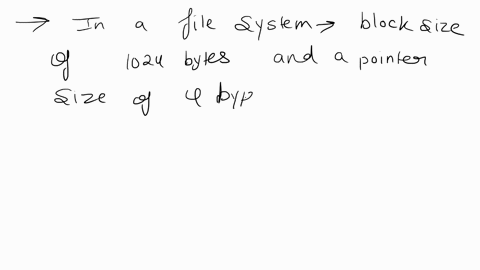 → In a file System → block size
of 1024 bytes and a pointer
size of 4 byp